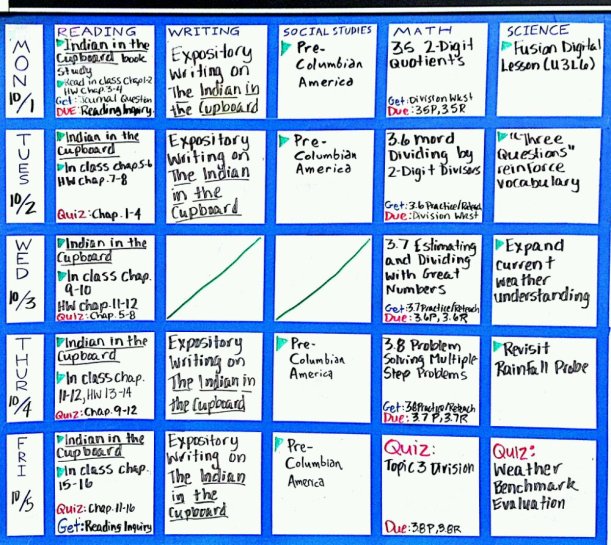 READING
WRITING
SOCIAL STUDIES
MATH
SCIENCE
MON
10/1
Indian in the
Cupboard book
Study
Read in class Chap 1-2
HW Chap. 3-4
Get: Journal Question
DUE: Reading Inquiry
Expository
Writing on
The Indian in
the Cupboard
Pre-
Columbian
America
3.5 2-Digit
Quotients
Get: Division Wkst
Due: 3.5P, 3.5R
Fusion Digital
Lesson (U3L6)
TUES
10/2
Indian in the
Cupboard
In class chap 5-6
HW Chap. 7-8
Quiz: Chap. 1-4
Expository
Writing on
The Indian
in the
Cupboard
Pre-
Columbian
America
3.6 more
Dividing by
2-Digit Divisors
Get: 3.6 Practice/Reteach
Due: Division Wkst
"Three
Questions"
reinforce
vocabulary
WED
10/3
Indian in the
Cupboard
In class Chap.
9-10
HW Chap. 11-12
Quiz: Chap. 5-8
3.7 Estimating
and Dividing
with Great
Numbers
Get: 3.7 Practice/Reteach
Due: 3.6P, 3.6R
Expand
current
weather
understanding
THUR
10/4
Indian in the
Cupboard
In class chap.
11-12, HW 13-14
Quiz: Chap. 9-12
Expository
Writing on
The Indian in
the Cupboard
Pre-
Columbian
America
3.8 Problem
Solving Multiple
Step Problems
Get: 3.8 Practice/Reteach
Due: 3.7P, 3.7R
Revisit
Rainfall Probe
FRI
10/5
Indian in the
Cupboard
In class Chap.
15-16
Quiz: Chap. 11-16
Get: Reading Inquiry
Expository
Writing on
The Indian
in the
Cupboard
Pre-
Columbian
America
Quiz:
Topic 3 Division
Due: 3.8P, 3.8R
Quiz:
Weather
Benchmark
Evaluation